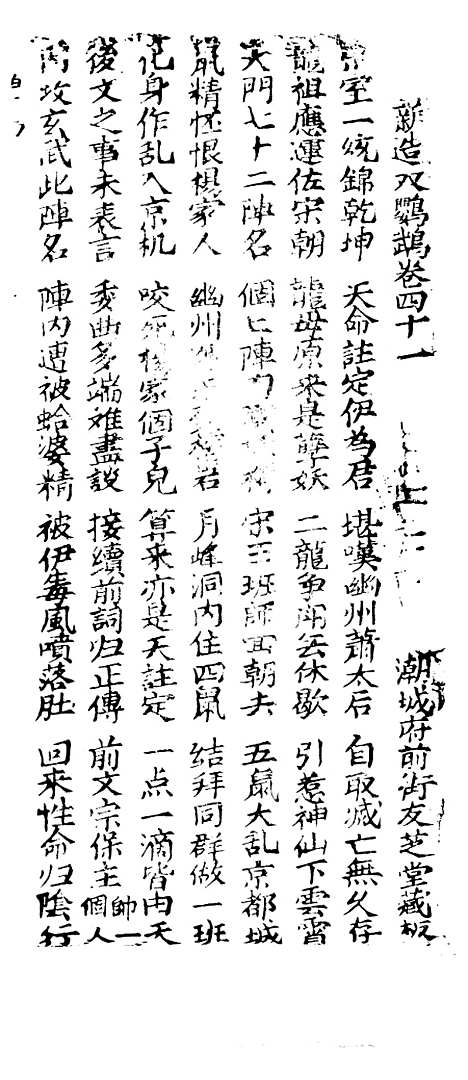 新造双鹦鹉卷四十一 潮城府前街友芝堂藏板
室一统錦乾坤 天命註定伊為君 堪嘆幽州蕭太后 自取滅亡無久存
龍祖應運佐宋朝 龍母原来是孽妖 二龍爭鬧無休歇 引惹神仙下雲霄
天門七十二陣名 個七陣 宋王班師回朝去 五鼠大乱京都城
鼠精怪恨楊家人 幽州 月峰洞内住四鼠 結拜同群做一班
化身作乱入京机 咬死楊家個子兒 算来亦是天註定 一点一滴皆由天
後文之事未表言 委曲多端难盡說 接續前詞归正傳 前文宗保主帥一個人
攻玄武此陣名 陣内遭被蛤婆精 被伊毒風噴落肚 回來性命归陰行